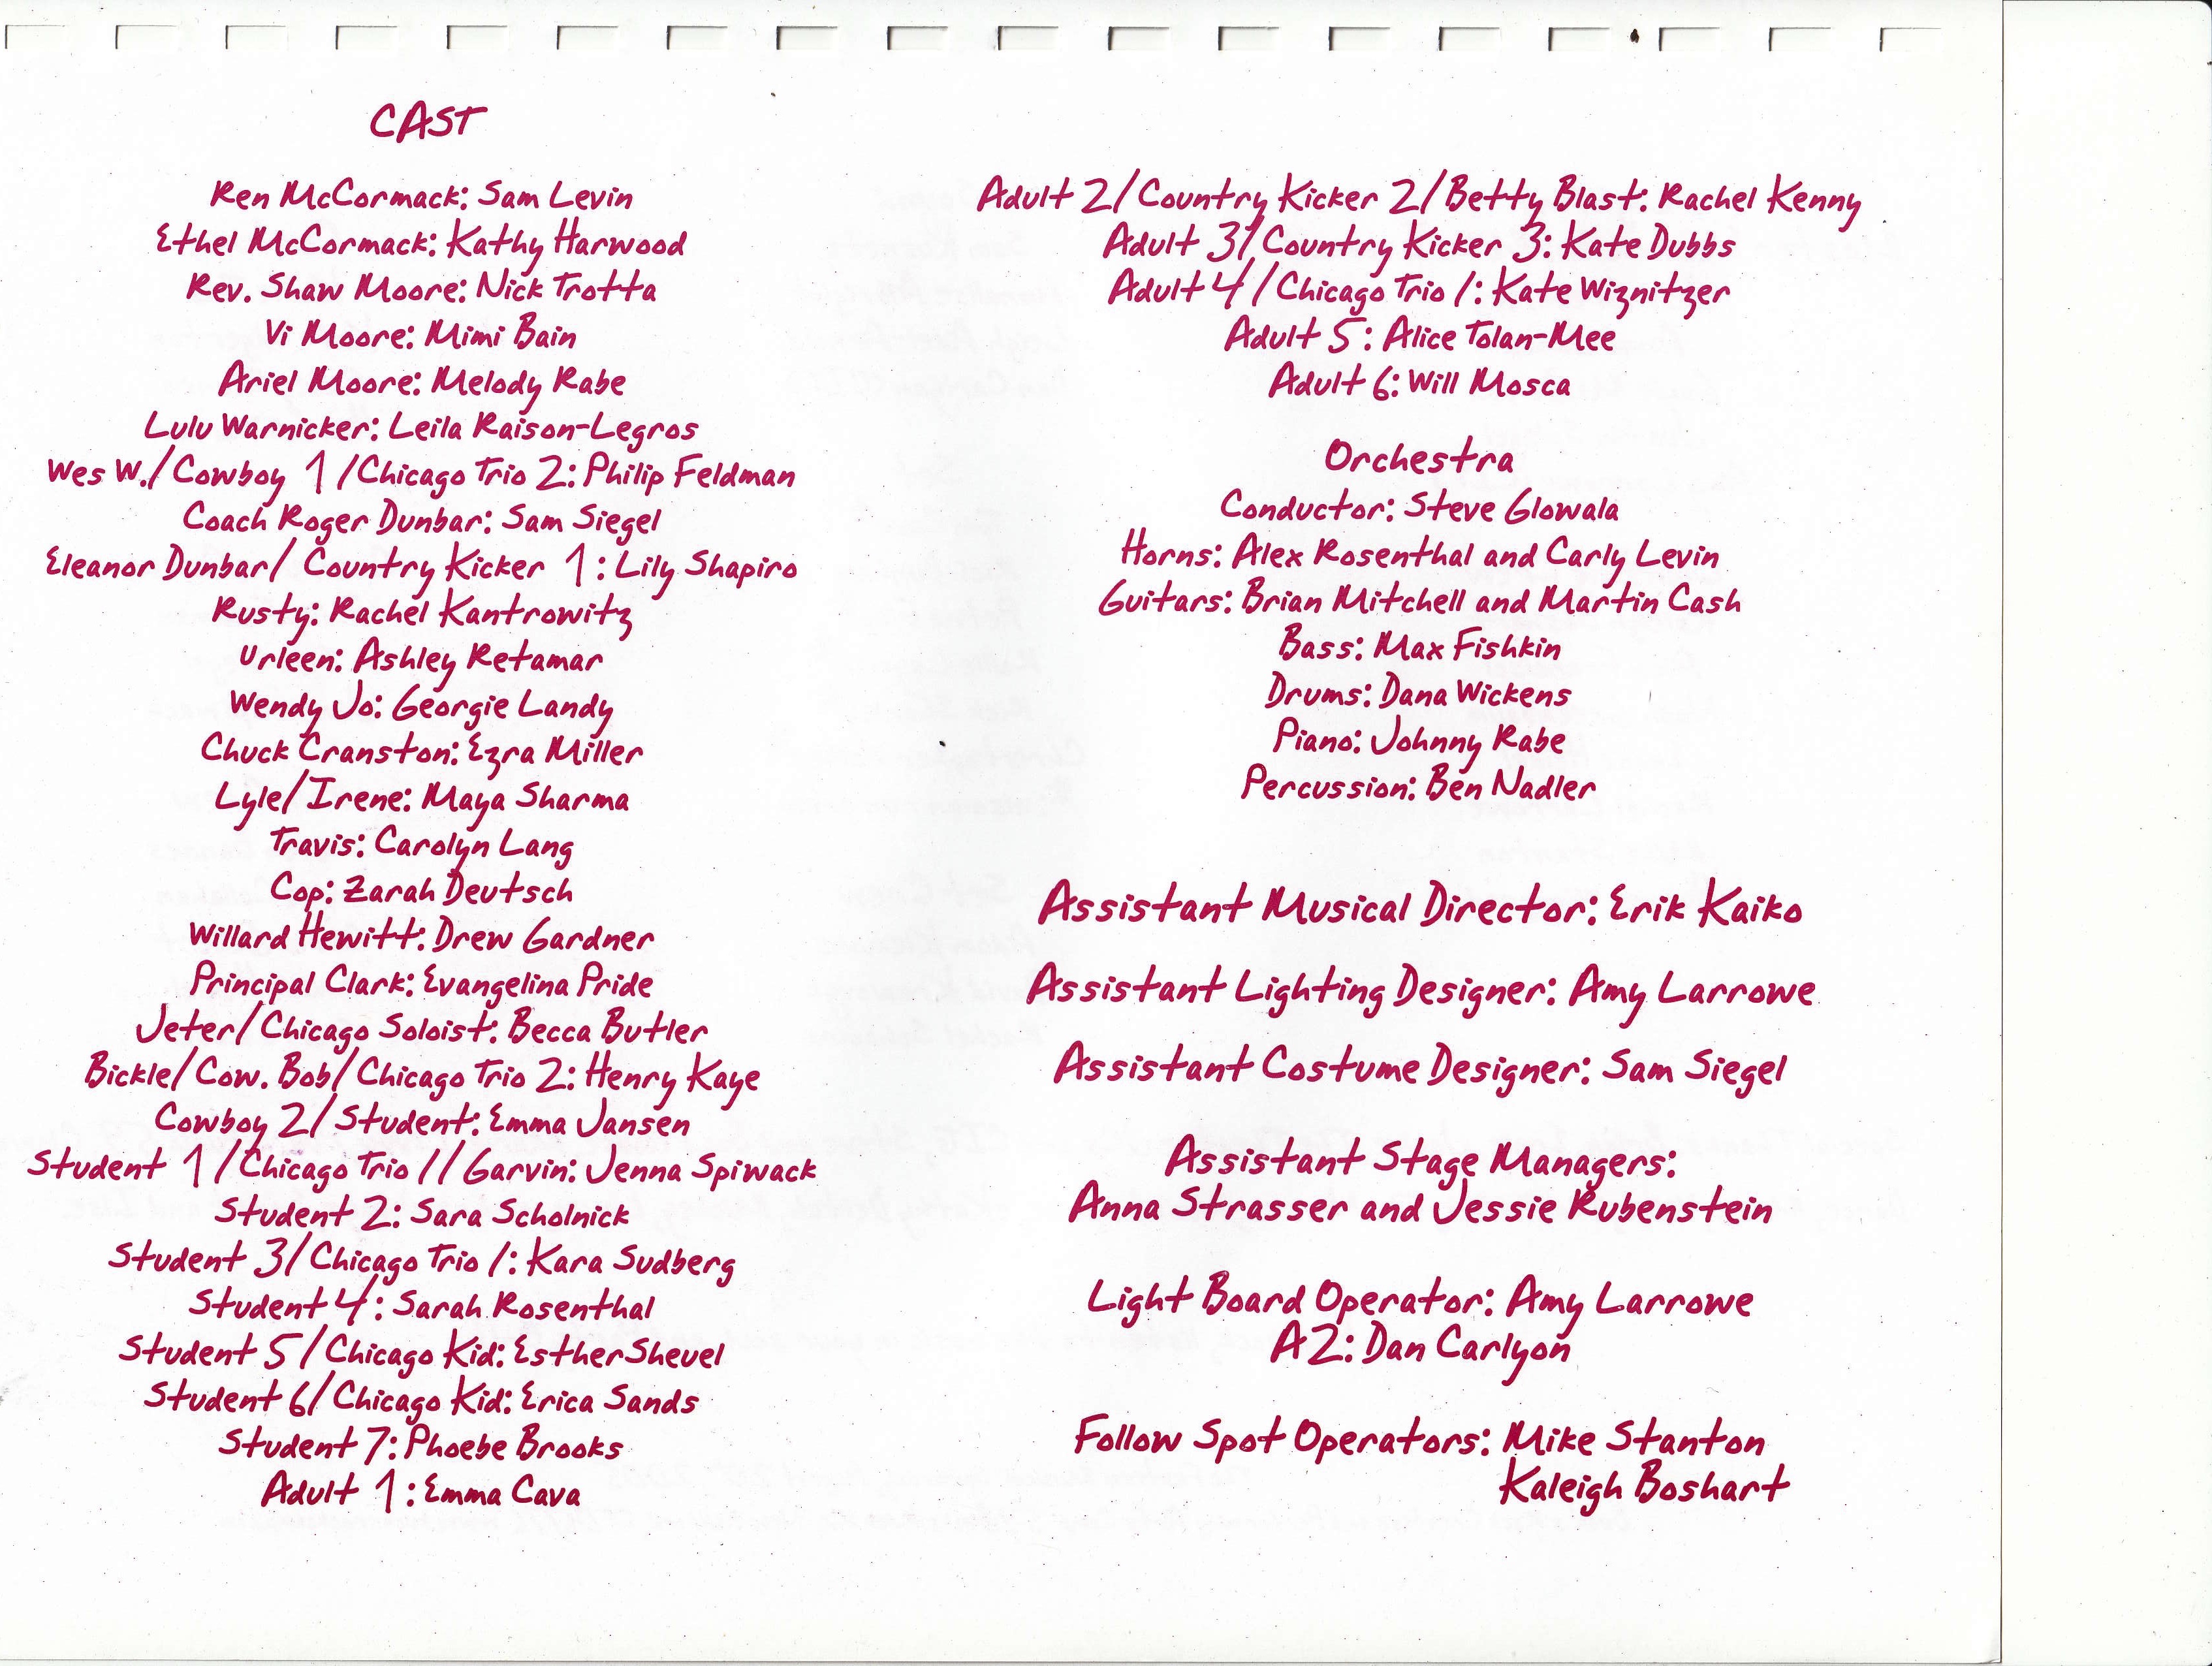 CAST
Ren McCormack: Sam Levin
Ethel McCormack: Kathy Harwood
Rev. Shaw Moore: Nick Trotta
Vi Moore: Mimi Bain
Ariel Moore: Melody Rabe
Lulu Warnicker: Leila Raison-Legros
Wes W./Cowboy 1/Chicago Trio 2: Philip Feldman
Coach Roger Dunbar: Sam Siegel
Eleanor Dunbar/ Country Kicker 1: Lily Shapiro
Rusty: Rachel Kantrowitz
Urleen: Ashley Retamar
Wendy Jo: Georgie Landy
Chuck Cranston: Ezra Miller
Lyle/Irene: Maya Sharma
Travis: Carolyn Lang
Cop: Zarah Deutsch
Willard Hewitt: Drew Gardner
Principal Clark: Evangelina Pride
Jeter/Chicago Soloist: Becca Butler
Bickle/Cow. Bob/Chicago Trio 2: Henry Kaye
Cowboy 2/Student: Emma Jansen
Student 1/Chicago Trio 1/Garvin: Jenna Spiwack
Student 2: Sara Scholnick
Student 3/Chicago Trio 1: Kara Sudberg
Student 4: Sarah Rosenthal
Student 5/Chicago Kid: Esther Shevel
Student 6/Chicago Kid: Erica Sands
Student 7: Phoebe Brooks
Adult 1: Emma Cava
Adult 2/Country Kicker 2/Betty Blast: Rachel Kenny
Adult 3/Country Kicker 3: Kate Dubbs
Adult 4/Chicago Trio 1: Kate Wiznitzer
Adult 5: Alice Tolan-Mee
Adult 6: Will Mosca
Orchestra
Conductor: Steve Glowala
Horns: Alex Rosenthal and Carly Levin
Guitars: Brian Mitchell and Martin Cash
Bass: Max Fishkin
Drums: Dana Wickens
Piano: Johnny Rabe
Percussion: Ben Nadler
Assistant Musical Director: Erik Kaiko
Assistant Lighting Designer: Amy Larrowe
Assistant Costume Designer: Sam Siegel
Assistant Stage Managers:
Anna Strasser and Jessie Rubenstein
Light Board Operator: Amy Larrowe
A2: Dan Carlyon
Follow Spot Operators: Mike Stanton
Kaleigh Boshart